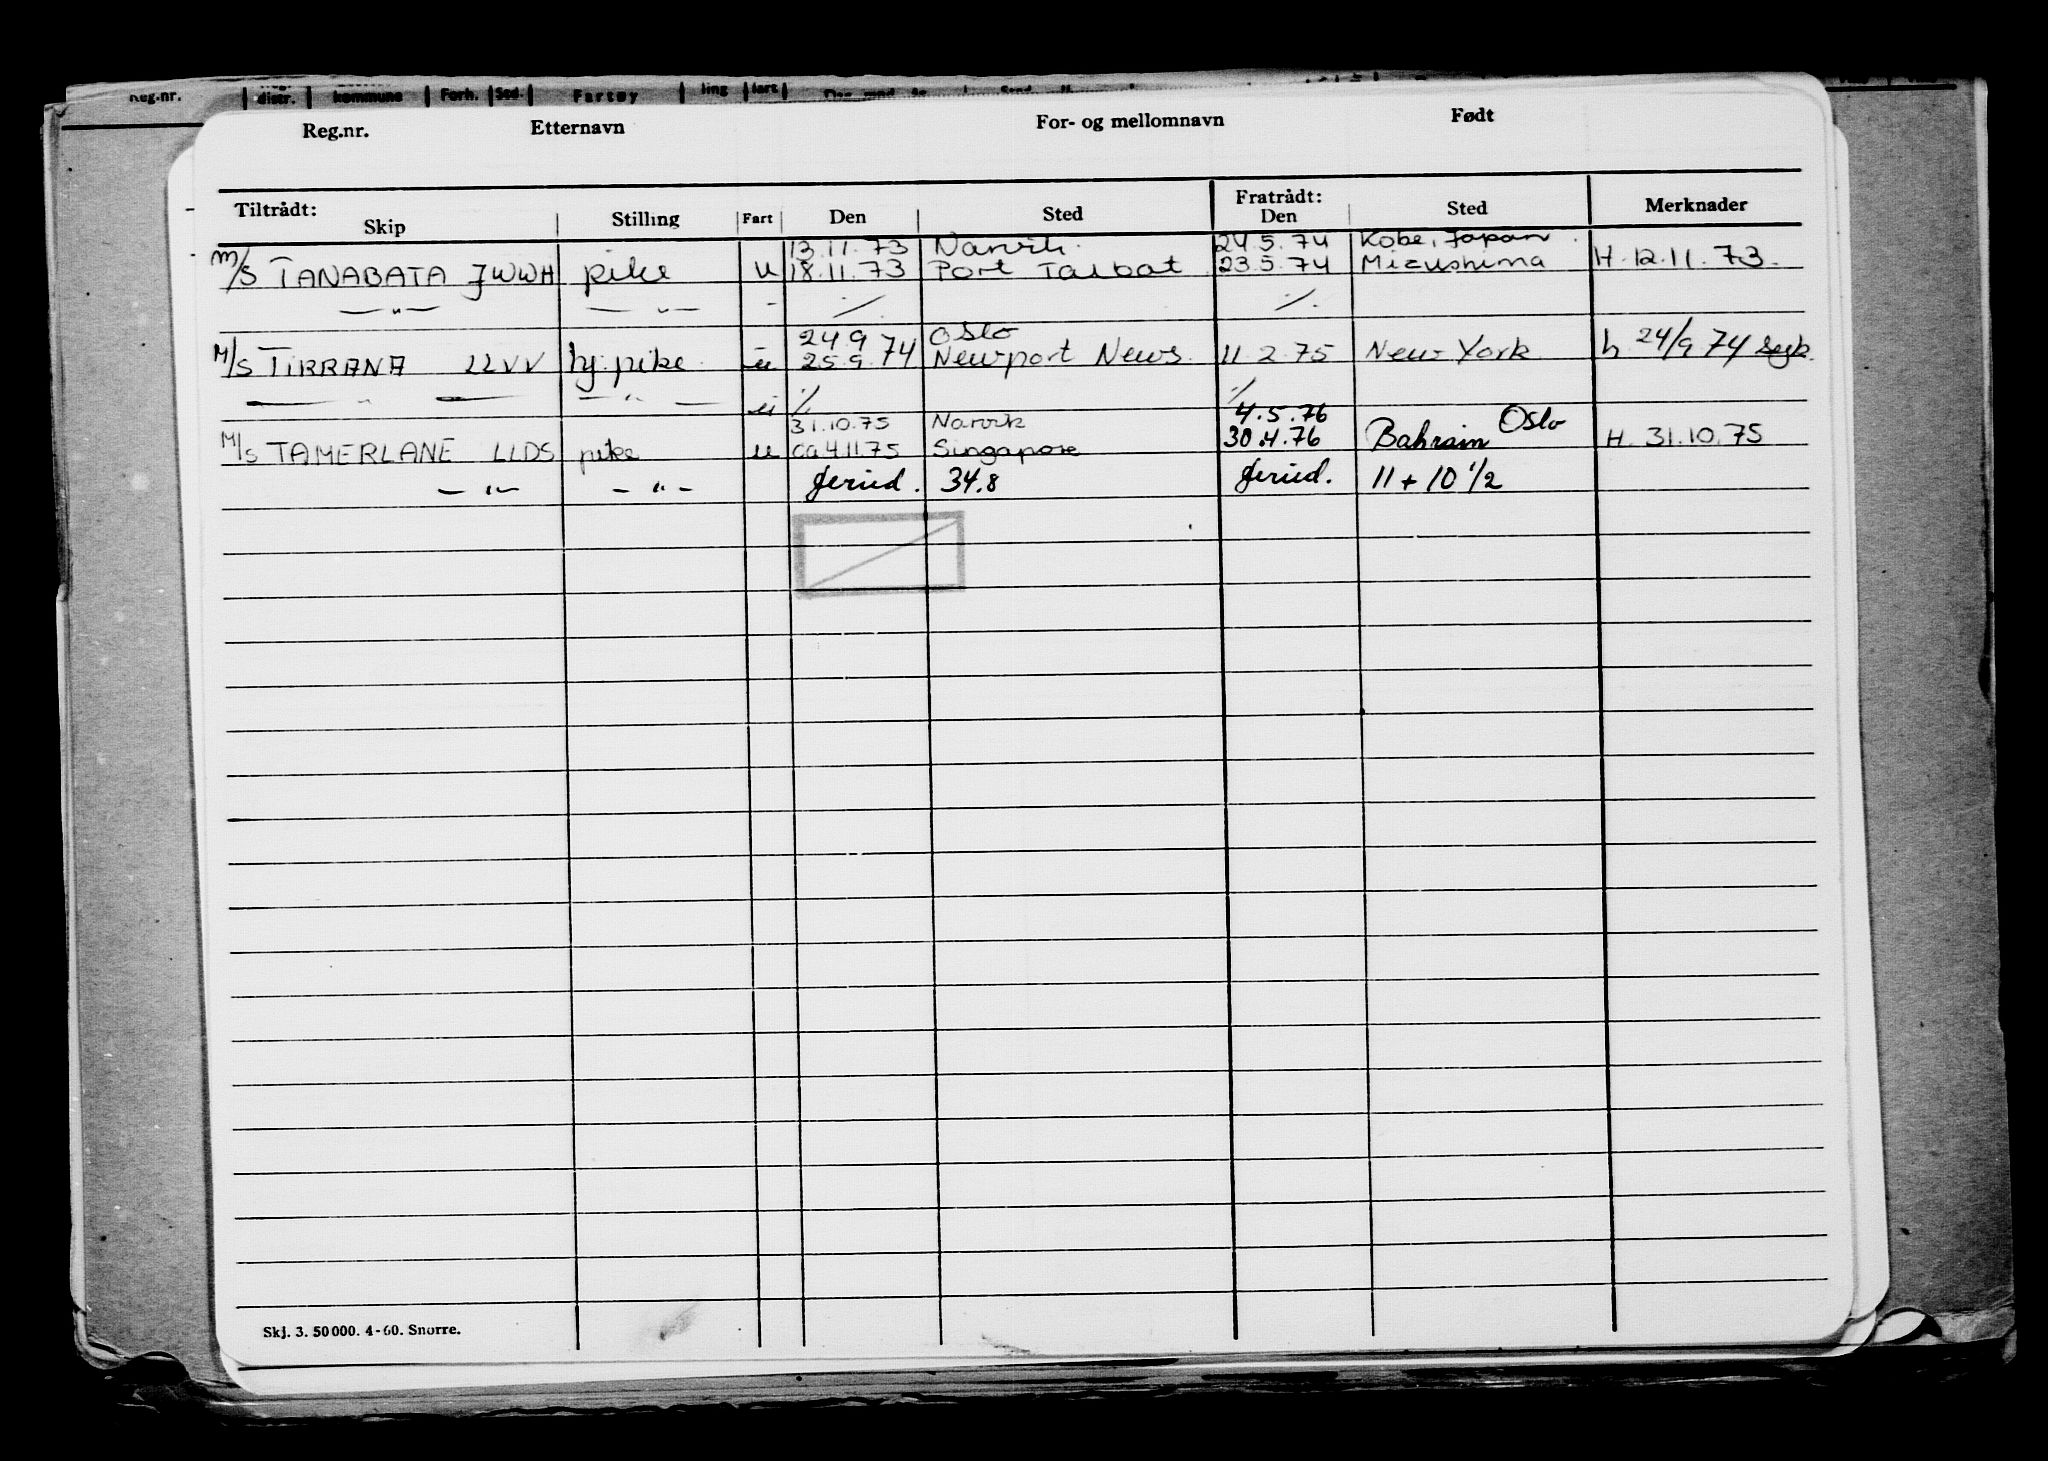 Reg.nr. distr. kommune Forh. Sed. Fartøy ling fart
Reg.nr. Etternavn For- og mellomnavn Født
Tiltrådt: Fratrådt:
Skip Stilling Fart Den Sted Den Sted Merknader
13.11.73 Narvik. 24.5.74 Kobe, Japan.
M/S TANABATA JWWH pike u 18.11.73 Port Talbot 23.5.74 Mizushima H. 12.11.73.
— " — — " — - ./. ./.
24 9 Oslo
M/S TIRRANA LLVV hj. pike u 25.9.74 Newport News 11 2.75 New York h 24/9 74
— " — — " — u ./. ./.
31.10.75 Narvik 4.5.76 Oslo
M/S TAMERLANE LLDS pike u ca 4.11.75 Singapore 30.4.76 Bahrain H. 31.10.75
— " — — " — feried. 34.8 feried. 11 + 10 1/2
Skj. 3. 50 000. 4-60. Snorre.